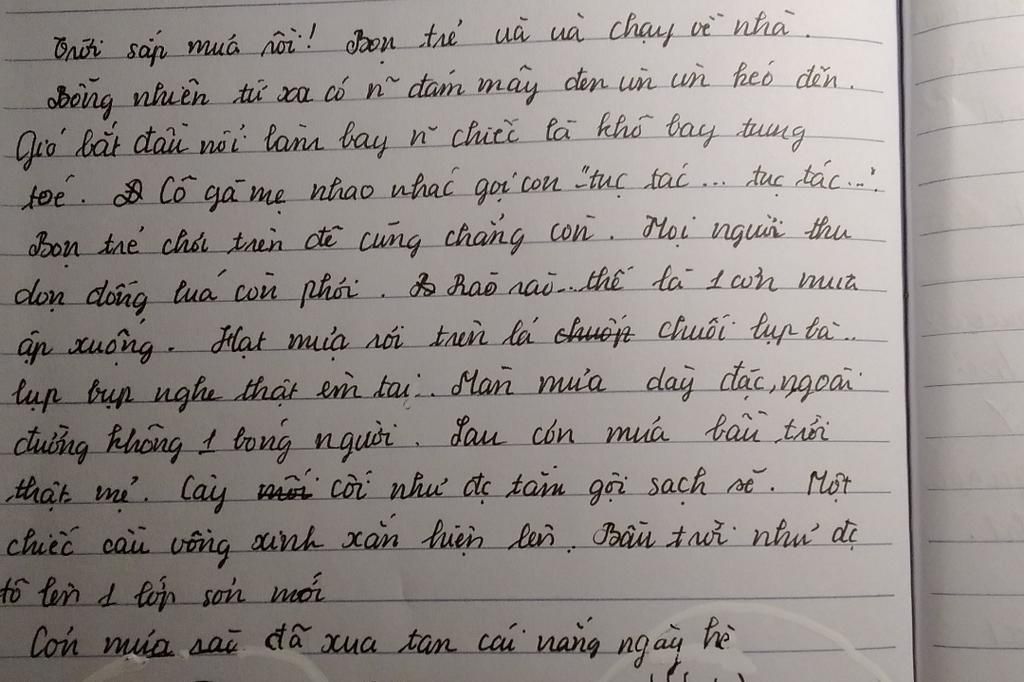 Trời sắp mưa rồi! Bọn trẻ ùa ùa chạy về nhà.
Bỗng nhiên từ xa có n~ đám mây đen ùn ùn kéo đến.
Gió bắt đầu nổi làm bay n~ chiếc lá khô bay tung
toé. Cô gà mẹ nháo nhác gọi con "tục tác... tục tác...".
Bọn trẻ chơi trên đê cũng chẳng còn. Mọi người thu
dọn đống lúa còn phơi. Rào rào...thế là 1 cơn mưa
ập xuống. Hạt mưa rơi trên lá chuối chuối lụp bà..
lụp bụp nghe thật êm tai.. Màn mưa dày đặc, ngoài
đường không 1 bóng người. Sau cơn mưa bầu trời
thật mẻ. Cây mối cối như đc tắm gội sạch sẽ. Một
chiếc cầu vồng xinh xắn hiện lên. Bầu trời như đc
tô lên 1 lớp sơn mới
Cơn mưa rào đã xua tan cái nắng ngày hè